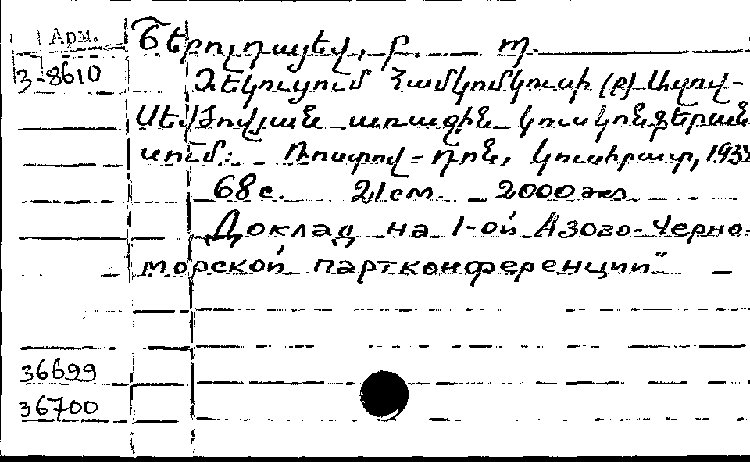 Арм.
3-8610
Շեբոլդայեվ, բ. պ.
Զեկուցում Համկոմկուսի (բ) Ազով-
Սեվծովյան առաջին կուսկոնֆերան
սում: Ռոստով-դոն, կուսհրատ, 193
68 с. 21 см. 2000 экз
„Доклад на 1-ой Азово-Черно-
морской партконференции"
36699
36700